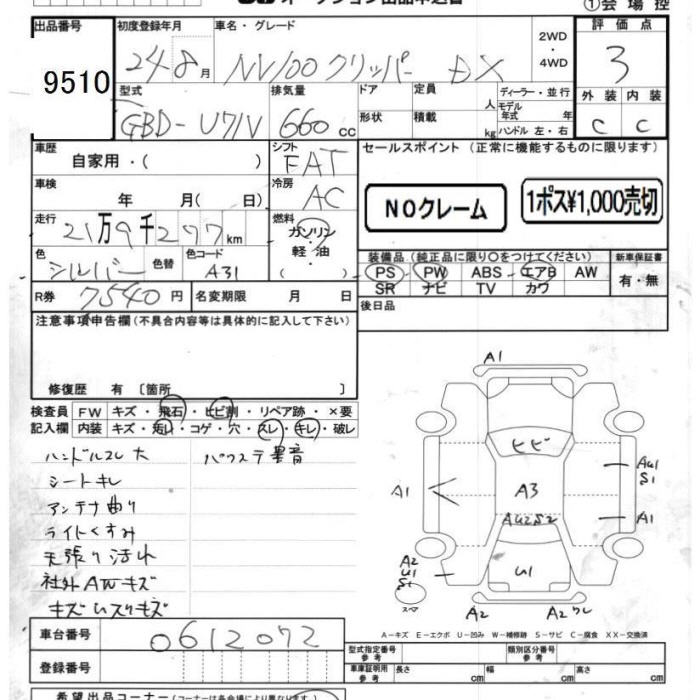 ①会場控
オークション出品申込書
出品番号
9510
初度登録年月
24 8月
車名・グレード
NV100クリッパー DX
2WD
・
4WD
評価点
3
型式
GBD-U71V
排気量
660 cc
ドア
形状
定員
人
積載
kg
ディーラー・並行
モデル
年式 年
ハンドル 左・右
外装 内装
C C
車歴
自家用・( )
シフト
FAT
車検
年 月( 日)
冷房
AC
走行
21万9千277km
燃料
ガソリン
・
軽油
( )
色
シルバー
色替
色コード
A31
R券
7540円
名変期限 月 日
セールスポイント(正常に機能するものに限ります)
NOクレーム
1ポス¥1,000売切
装備品(純正品に限り〇をつけてください)
PS PW ABS エアB AW
SR ナビ TV カワ
新車保証書
有・無
後日品
注意事項申告欄(不具合内容等は具体的に記入して下さい)
修復歴 有〔箇所 〕
検査員
記入欄
FW キズ・飛石・ヒビ割・リペア跡・×要
内装 キズ・汚れ・コゲ・穴・スレ・キレ・破レ
ハンドルスレ大
パワステ異音
シートキレ
アンテナ曲り
ライトくすみ
天張り汚れ
社外AWキズ
キズUスリキズ
A1
ヒビ
AU1
S1
A1
A3
A1
AU2S2
A2
U1
S1
U1
スペア
A2
A2ワレ
A-キズ E-エクボ U-凹み W-補修跡 S-サビ C-腐食 XX-交換済
車台番号
0612072
登録番号
型式指定番号
参考
類別区分番号
参考
車庫証明用
参考
長さ cm
幅 cm
高さ cm
希望出品コーナー(コーナーは各会場により異なります)